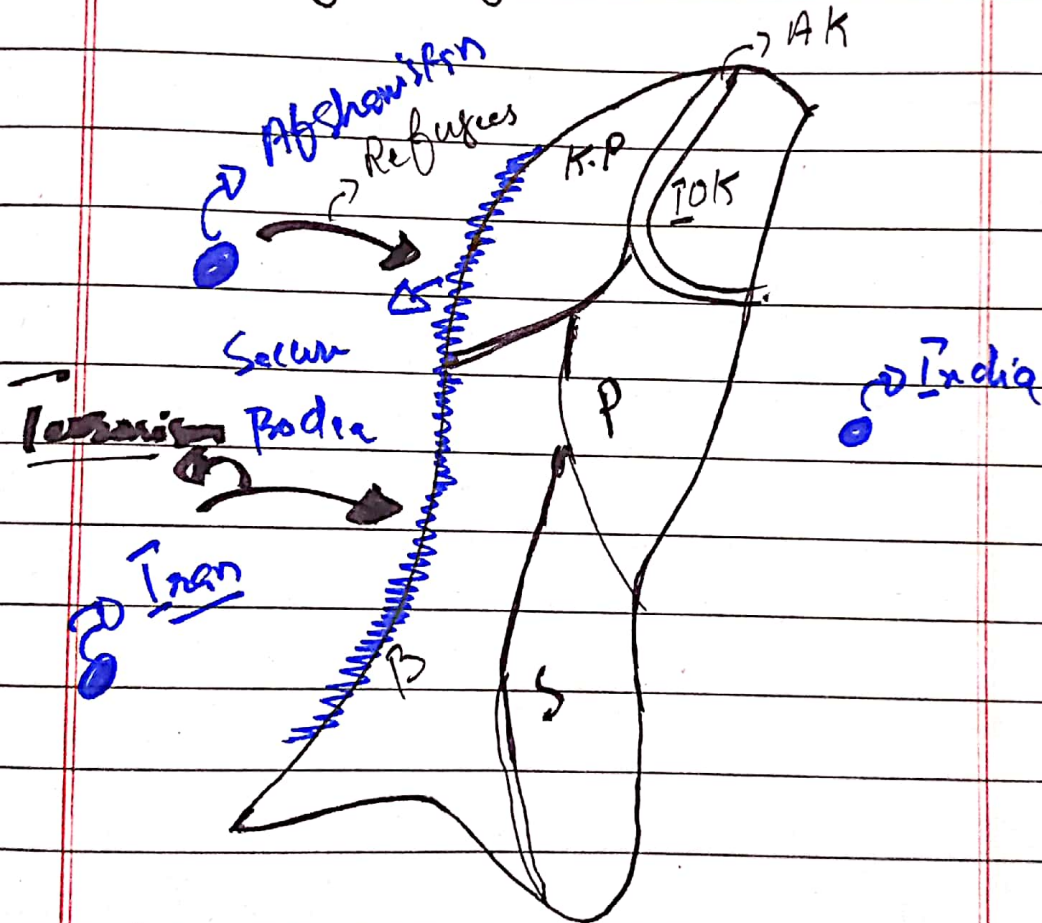 AK
Afghanistan
Refugees
K.P
IOK
Secure
Border
Terrorism
P
India
Iran
B
S